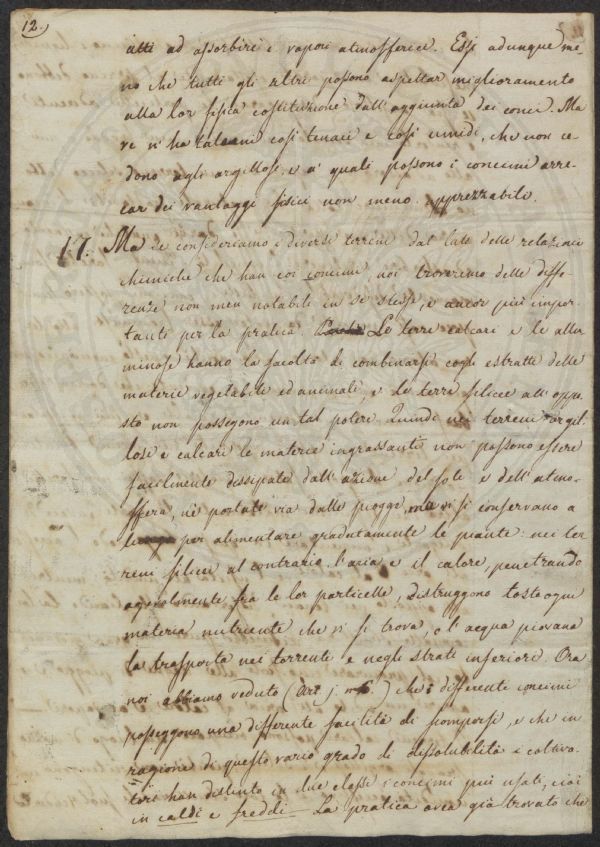 12.
atti ad assorbire i vapori atmosferici. Essi adunque me-
no che tutti gli altri possono aspettar miglioramento
alla lor fisica costituzione dall'aggiunta dei concî. Ma
ve n'ha taluni così tenaci e così umidi, che non ce-
dono agli argillosi, e a' quali possono i concimi arre-
car dei vantaggi fisici non meno apprezzabili.
17. Ma se consideriamo i diversi terreni dal lato delle relazioni
chimiche che han coi concimi, noi troveremo delle diffe-
renze non men notabili in se stesse, e ancor più impor-
tanti per la pratica. Le terre calcari e le allu
minose hanno la facoltà di combinarsi cogli estratti delle
materie vegetabili ed animali, e le terre silicee all'oppo-
sto non posseggono un tal potere. Quindi nei terreni argil
losi e calcari le materie ingrassanti non possono essere
facilmente dissipate dall'azione del sole e dell'atmo-
sfera, nè portate via dalle piogge, ma vi si conservano a
lungo per alimentare gradatamente le piante: nei ter
reni silicei al contrario l'aria e il calore, penetrando
agevolmente fra le lor particelle, distruggono tosto ogni
materia nutriente che vi si trova, o l'acqua piovana
la trasporta nei torrenti e negli strati inferiori. Ora
noi abbiamo veduto (Art j. n 6) che i differenti concimi
posseggono una differente facilità di scomporsi, e che in
ragione di questo vario grado di dissolubilità i coltiva-
tori han distinto in due classi i concimi più usati, cioè
in caldi e freddi — La pratica avea già trovato che